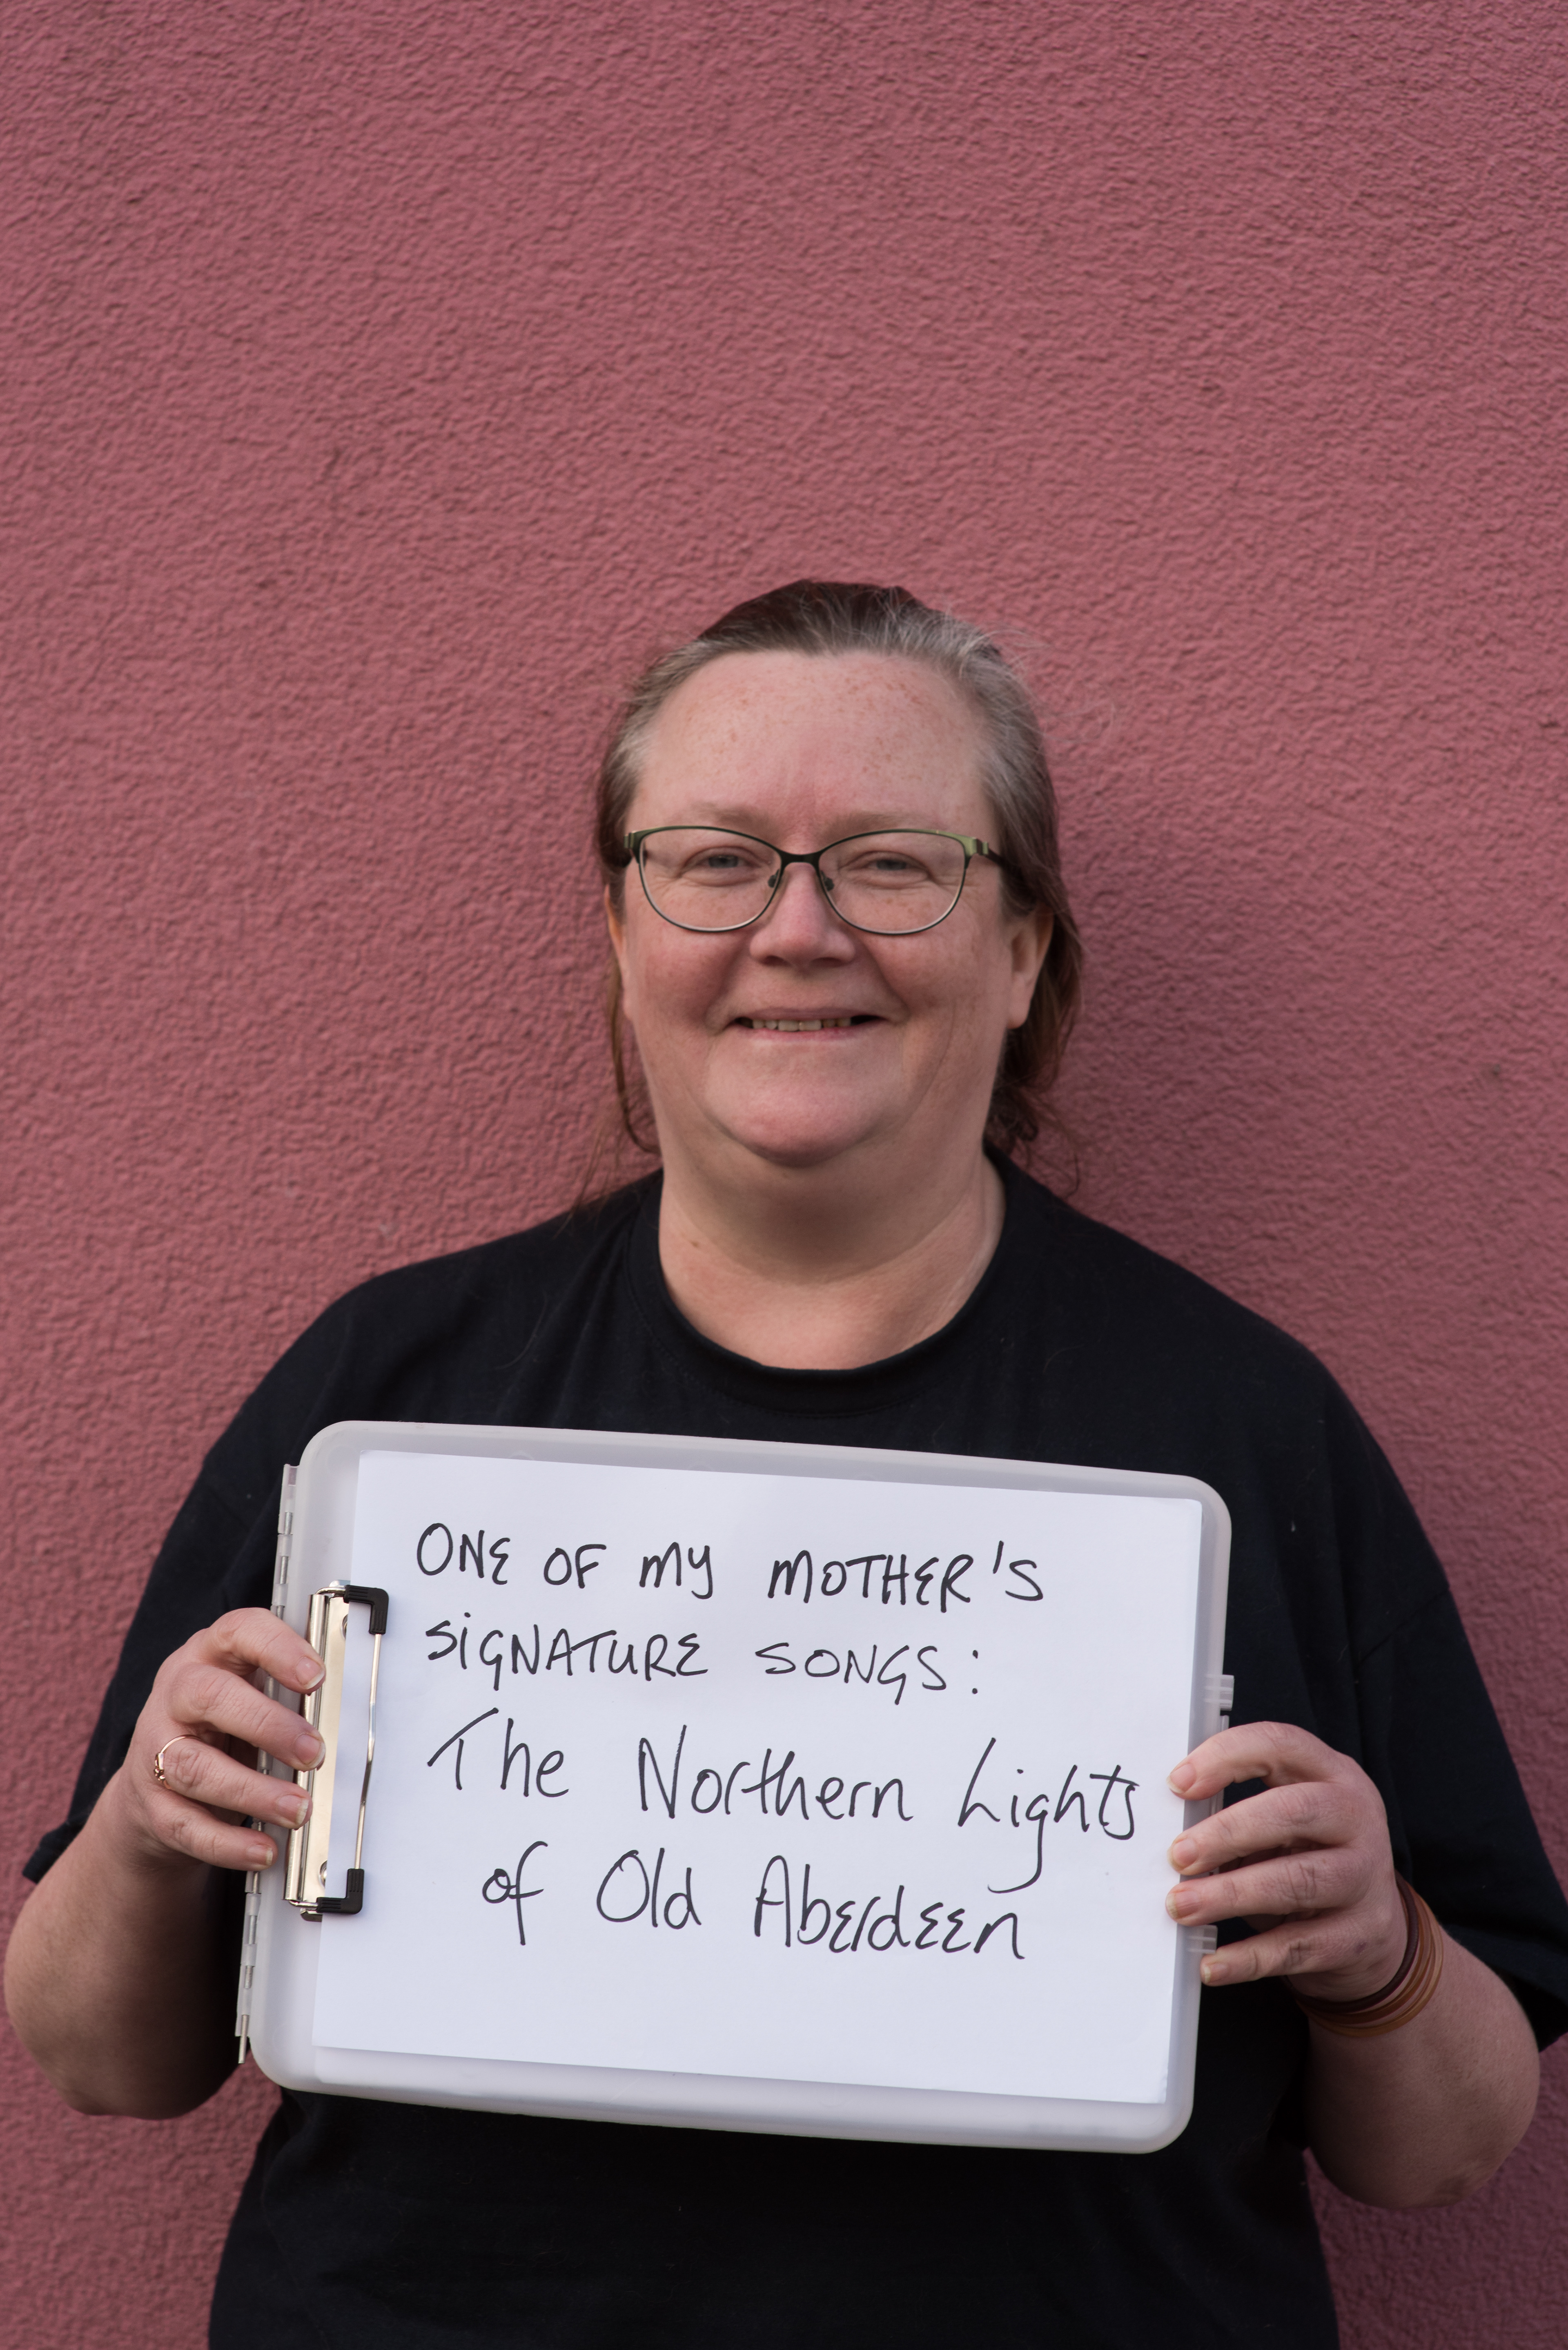 ONE OF MY MOTHER'S
SIGNATURE SONGS:
The Northern Lights
of Old Aberdeen